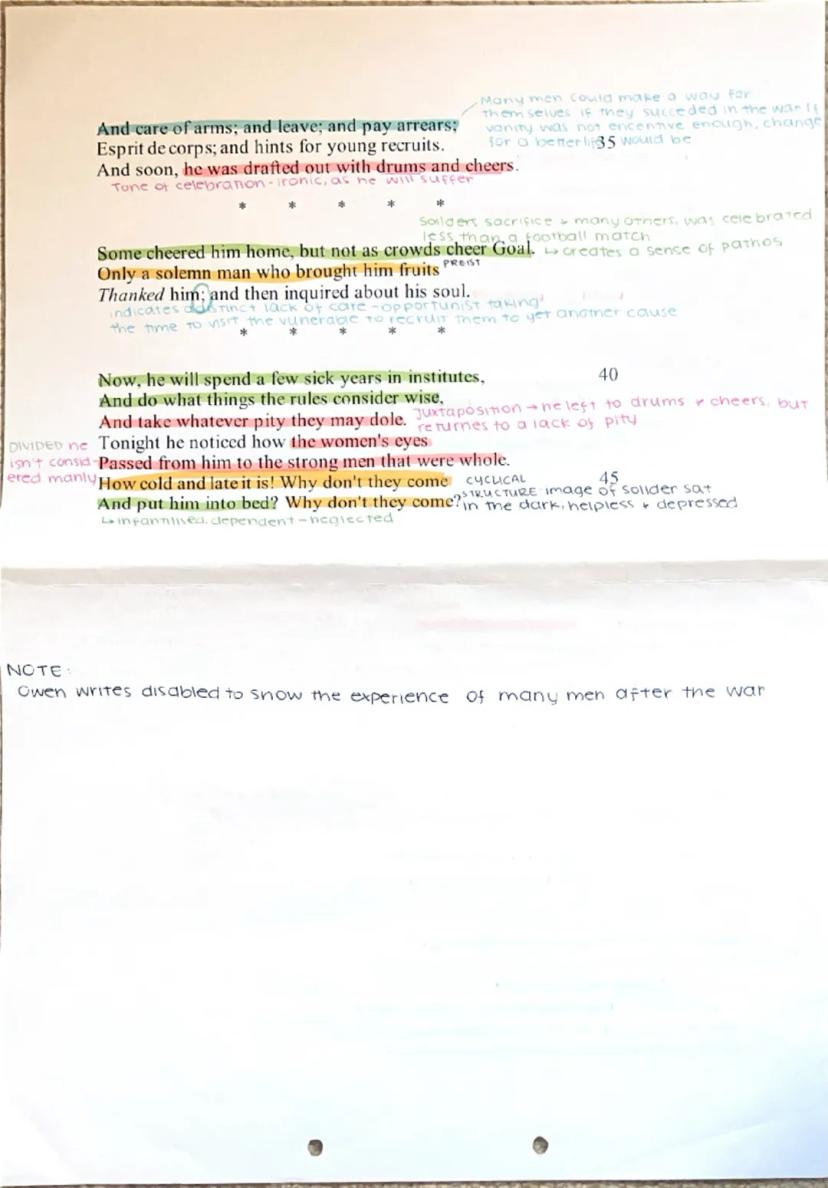 Many men could make a way for
themselves if they succeded in the war if
And care of arms; and leave; and pay arrears;
vanity was not encentive enough, change
Esprit de corps; and hints for young recruits.
for a better life 35 would be
And soon, he was drafted out with drums and cheers.
Tone of celebration - ironic, as he will suffer
* * * * *
Soilders sacrifice + many others, was celebrated
less than a football match
Some cheered him home, but not as crowds cheer Goal. ↳ creates a sense of pathos
Only a solemn man who brought him fruits PREIST
Thanked him; and then inquired about his soul.
indicates distinct lack of care - opportunist taking
the time to visit the vunerable to recruit them to yet another cause
* * * * *
Now, he will spend a few sick years in institutes, 40
And do what things the rules consider wise,
And take whatever pity they may dole. Juxtaposition → he left to drums + cheers, but
returnes to a lack of pity
Tonight he noticed how the women's eyes
DIVIDED he
isn't consid-
ered manly
Passed from him to the strong men that were whole.
How cold and late it is! Why don't they come 45
And put him into bed? Why don't they come?
CYCLICAL
STRUCTURE image of soilder sat
in the dark, helpless + depressed
↳ infantilised, dependent - neglected
NOTE:
Owen writes disabled to show the experience of many men after the war